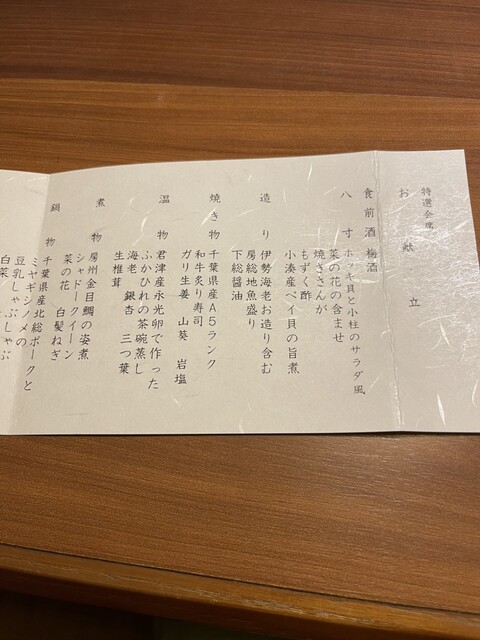 特選会席
お献立
食前酒 梅酒
八寸 ホッキ貝と小柱のサラダ風
菜の花の含ませ
焼きさんが
もずく酢
小湊産ベイ貝の旨煮
造り 伊勢海老お造り含む
房総地魚盛り
下総醤油
焼き物 千葉県産A5ランク
和牛炙り寿司
ガリ生姜 山葵 岩塩
温物 君津産永光卵で作った
ふかひれの茶碗蒸し
海老 銀杏 三つ葉
生椎茸
煮物 房州金目鯛の姿煮
シャドークイーン
菜の花 白髪ねぎ
鍋物 千葉県産北総ポークと
ミヤギシノメの
豆乳しゃぶしゃぶ
白菜